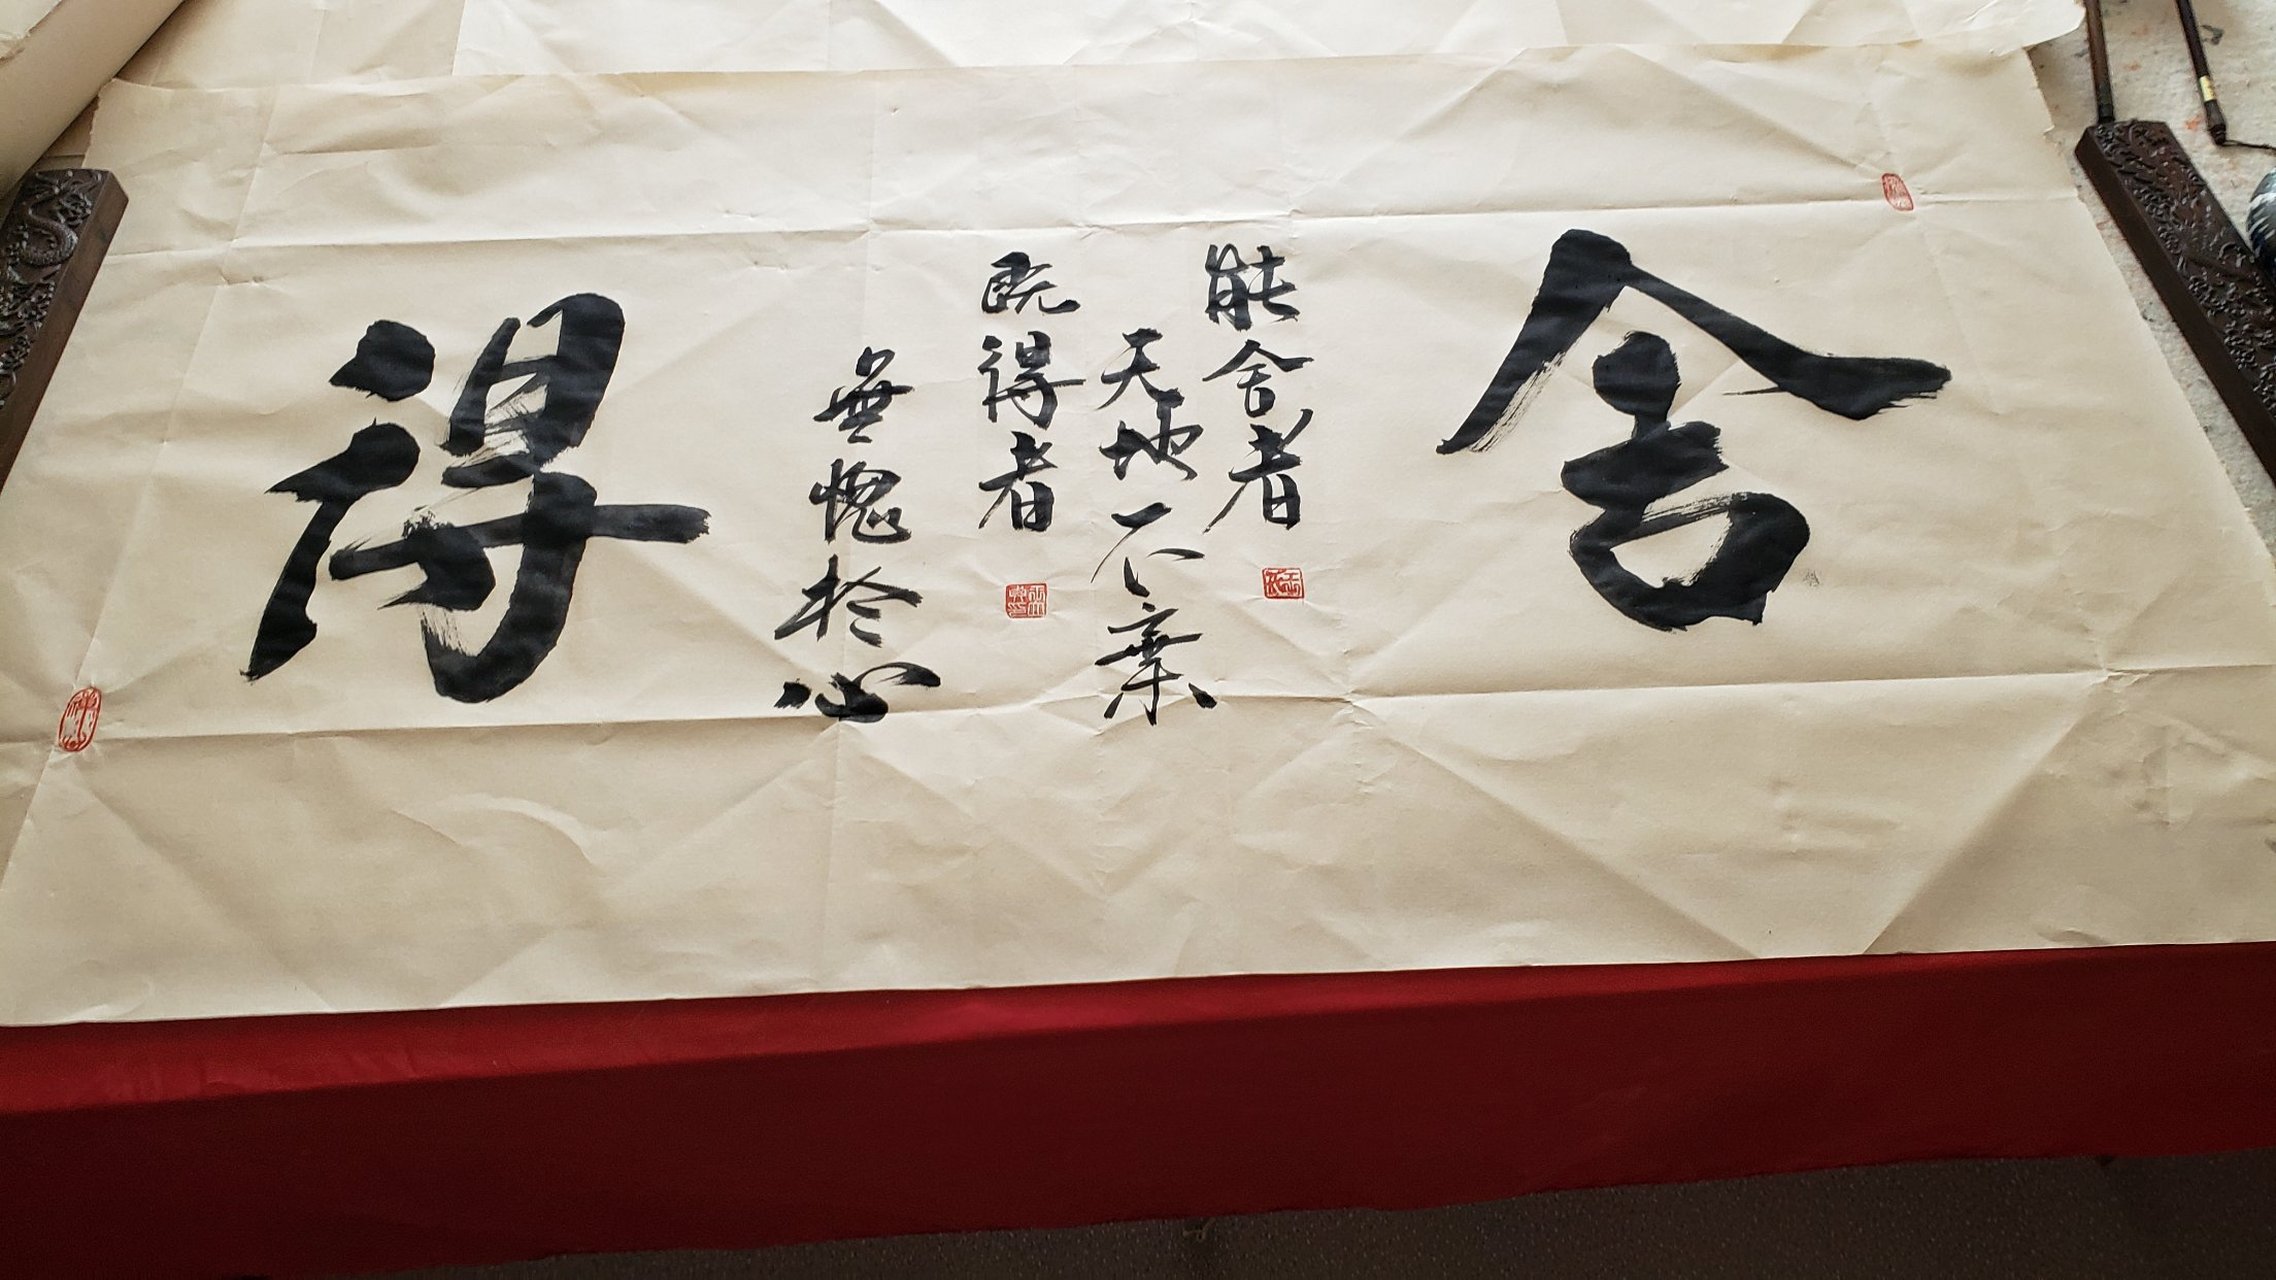 舍
能舍者
天地不棄
既得者
無愧於心
得